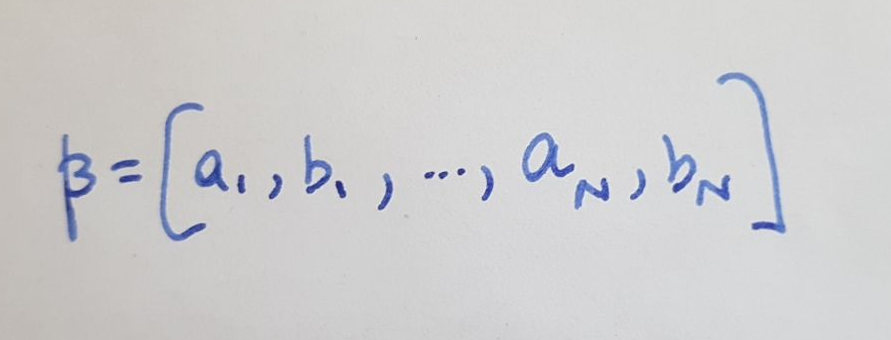 β = [a₁, b₁, ..., a_N, b_N]